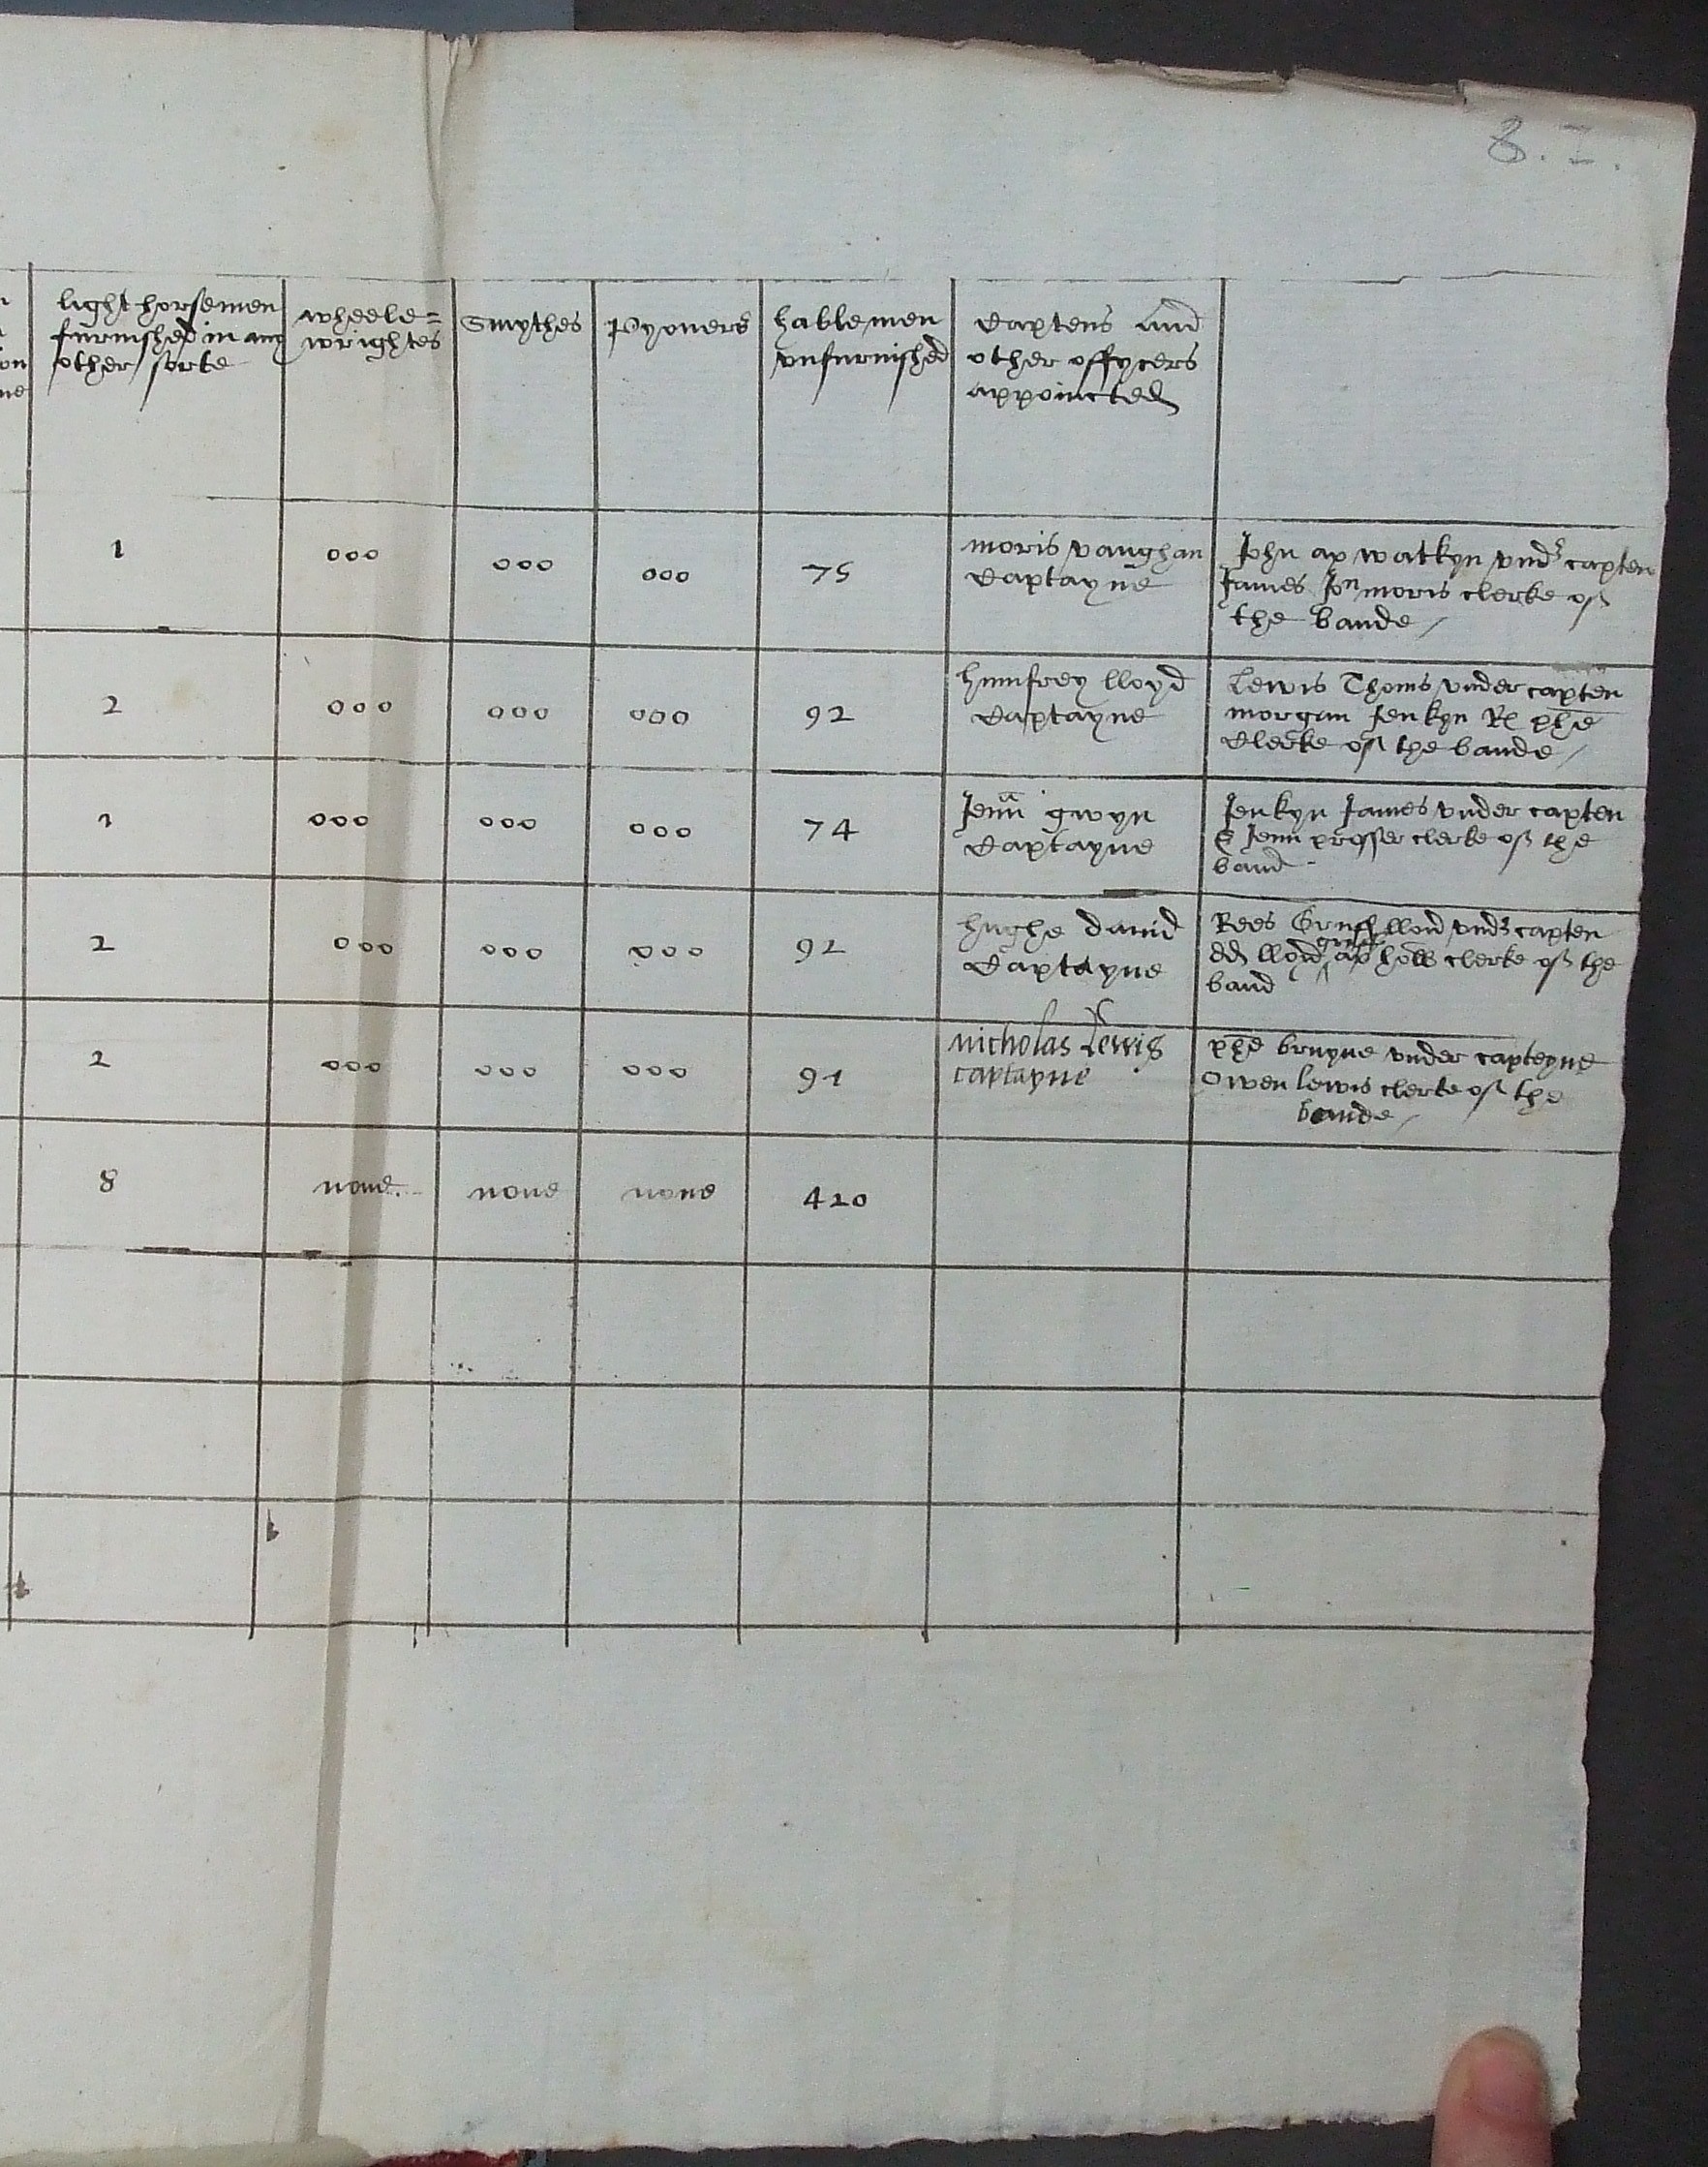 8. I.
light horsemen
furnished in any
other sorte
wheele=
wrightes
Smythes
Pyoners
hable men
vnfurnished
Captens and
other offycers
appoincted
1
ooo
ooo
ooo
75
moris vaughan
Captayne
John ap watkyn vnder capten
James Jon moris clerke of
the bande /
2
ooo
ooo
ooo
92
humfrey lloyd
Captayne
Lewis Thoms vnder capten
morgan Jenkyn phe
Clerke of the bande /
1
ooo
ooo
ooo
74
Jeuan gwyn
Captayne
Jenkyn James vnder capten
& Jeuan prosser clerke of the
band
2
ooo
ooo
ooo
92
hughe dauid
Captayne
Rees Gruff lloid vnder capten
dd lloyd gruff ap hoell clerke of the
band
2
ooo
ooo
ooo
91
nicholas Lewis
captayne
phe bruyne vnder capteyne
Owen lewis clerke of the
bande /
8
none
none
none
420